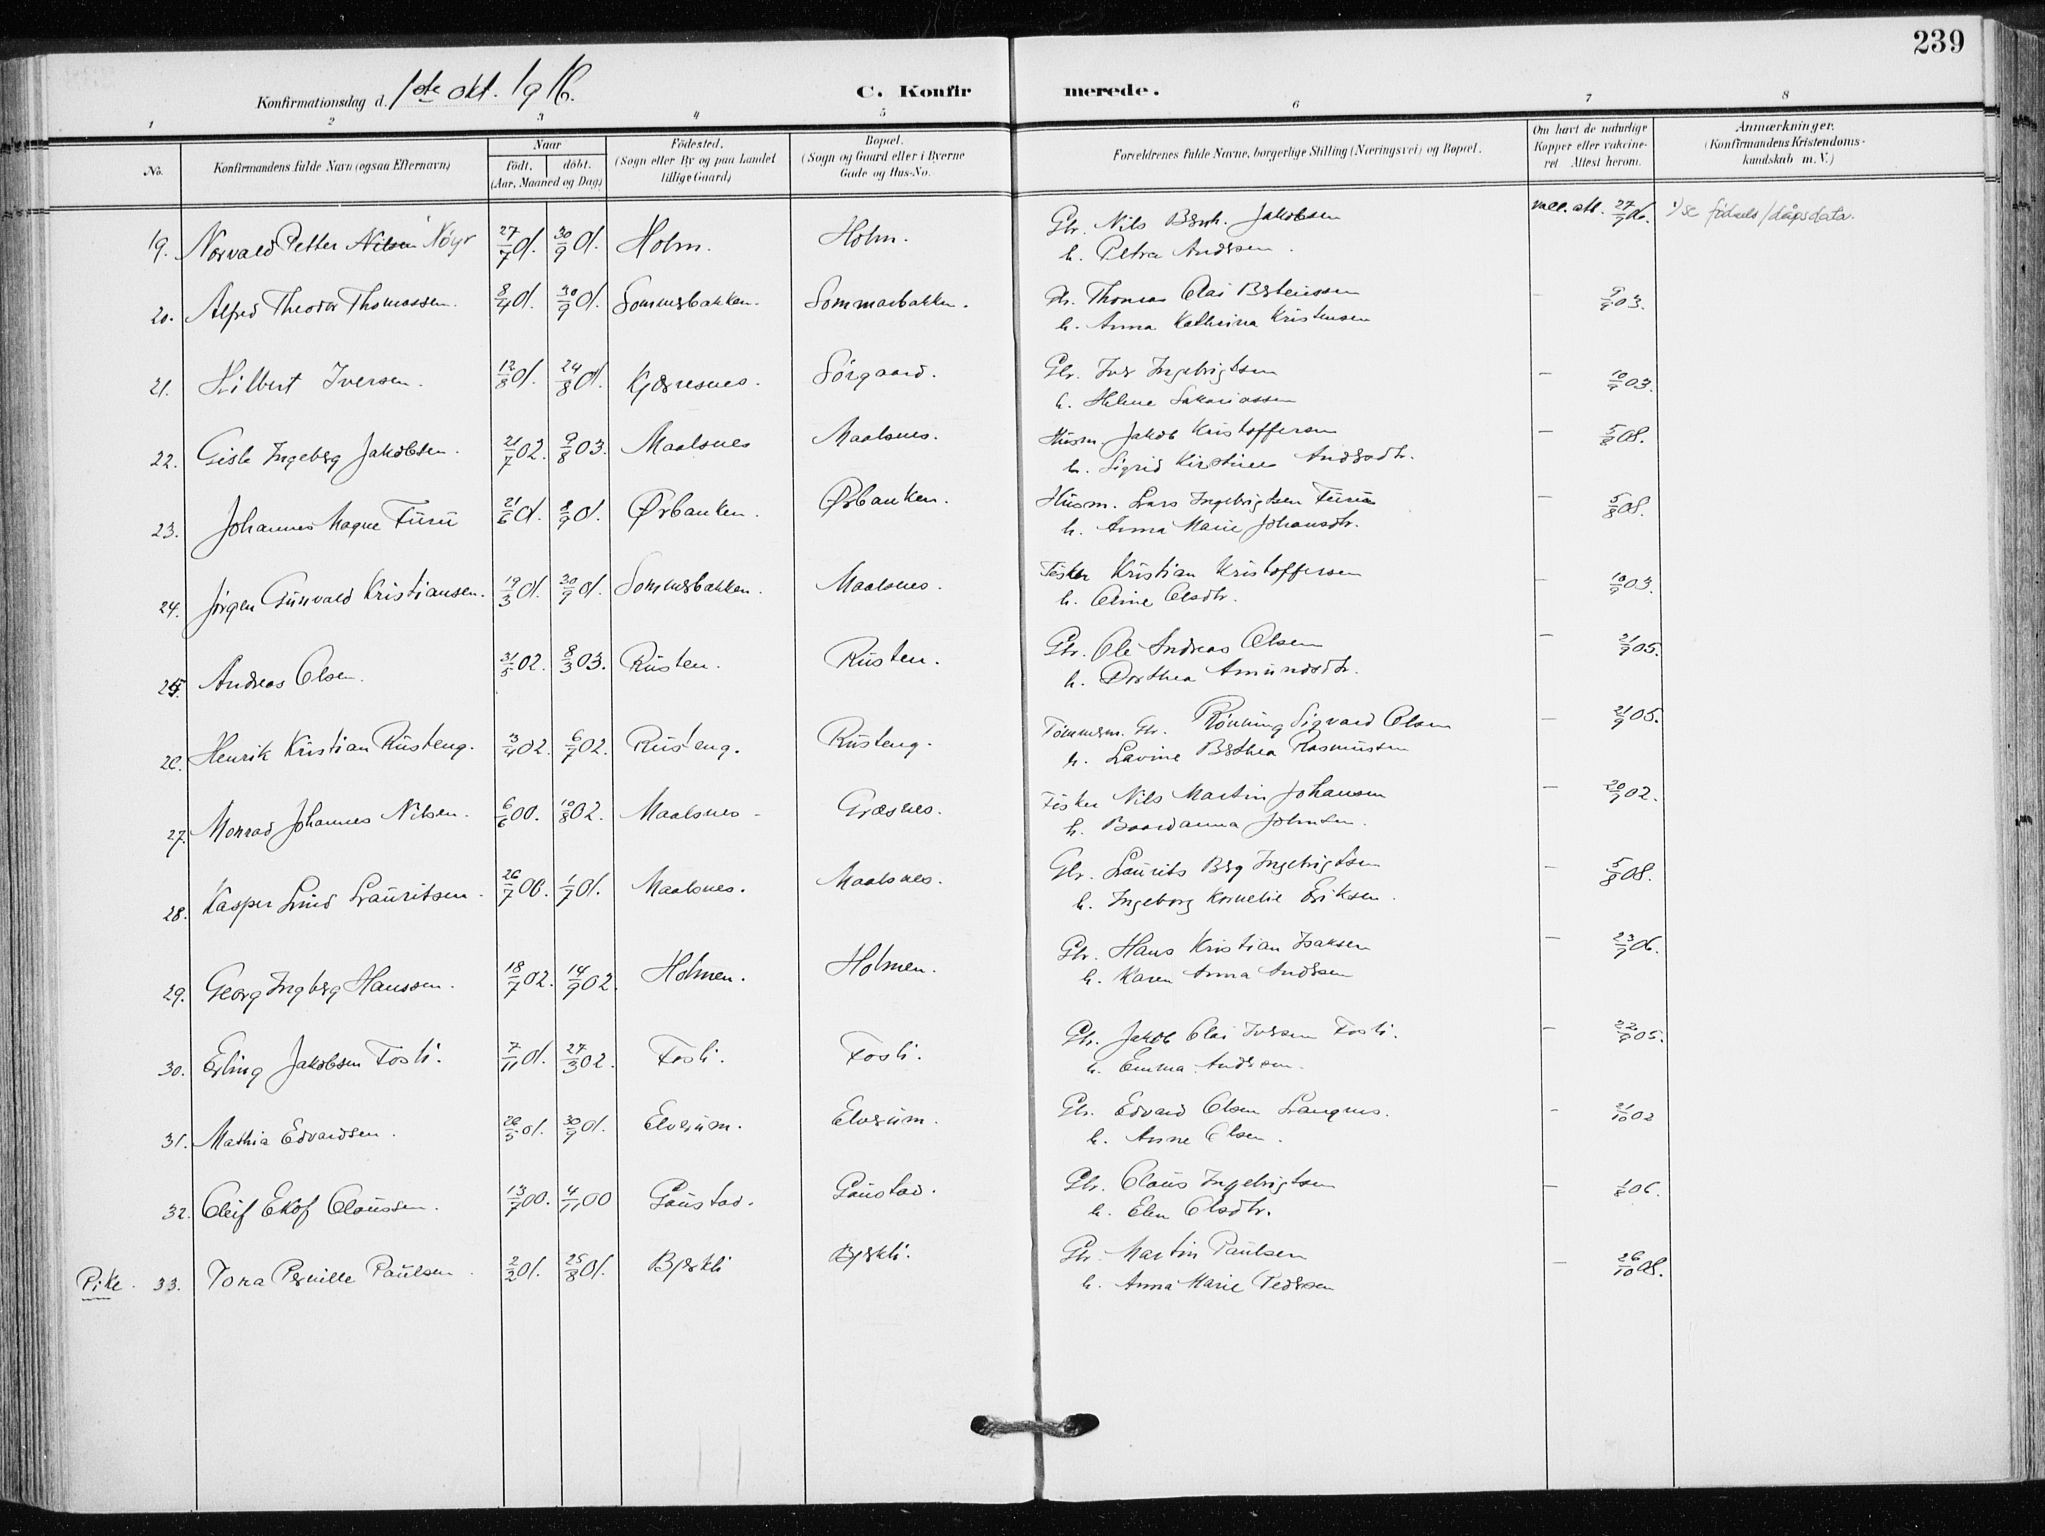 239
Konfirmationsdag d. 1ste okt. 1916. C. Konfirmerede.
1 2 3 4 5 6 7 8
No. Konfirmandens fulde Navn (ogsaa Efternavn) Naar födt. döbt. (Aar, Maaned og Dag) Födested. (Sogn eller By og paa Landet tillige Gaard) Bopæl. (Sogn og Gaard eller i Byerne Gade og Hus-No. Forældrenes fulde Navne, borgerlige Stilling (Næringsvei) og Bopæl. Om havt de naturlige Kopper eller vaccineret Attest herom. Anmærkninger. (Konfirmandens Kristendomskundskab m. V.)
19. Norvald Petter Nilsen Nöyr 27/7 01. 30/9 01. Holm. Holm. Gbr. Nils Bernh. Jakobsen vacc. att. 27/9 06. 1) se födsels/dåpsdata.
h. Petra Andersen.
20. Alfred Theodor Thomassen. 8/4 01. 30/9 01. Sommerbakken. Sommarbakken. Gbr. Thomas Olai Berteussen — 9/9 03.
h. Anna Kathrina Kristensen
21. Hilbert Iversen. 12/8 01. 24/8 01. Kjerresnes. Sörgaard. Gbr. Iver Ingebrigtsen — 10/9 03.
h. Helene Sakariassen
22. Gisle Ingeberg Jakobsen. 21/7 02. 9/8 03. Maalsnes Maalsnes. Husm. Jakob Kristoffersen — 5/8 08.
h. Sigrid Kirstine Andersdtr.
23. Johannes Magne Furu 21/6 01. 8/9 01. Ørbauken. Ørbauken. Husm. Lars Ingebrigtsen Furu — 5/8 08.
h. Anna Marie Johansdtr.
24. Jörgen Gunvald Kristiansen. 19/3 01. 30/9 01. Sommerbakken. Maalsnes. Fisker Kristian Kristoffersen — 10/9 03.
h. Oline Olsdtr.
25. Andreas Olsen. 31/5 02. 8/3 03. Rusten. Rusten. Gbr. Ole Andreas Olsen — 21/9 05.
h. Dorthea Amundsdtr.
26. Henrik Kristian Rusteng. 3/4 02. 6/7 02. Rusteng. Rusteng. Tömmerm. Gbr. Rönning Sigvard Olsen — 21/9 05.
h. Lavine Berthea Rasmussen
27. Monrad Johannes Nilsen. 6/6 00. 10/8 02. Maalsnes Græsnes. Fisker Nils Martin Johansen — 20/9 02.
h. Baardanna Johnsen.
28. Kasper Lind Lauritsen. 26/7 00. 1/7 01. Maalsnes. Maalsnes. Gbr. Laurits Berg Ingebrigtsen — 5/8 08.
h. Ingeborg Kornelie Eriksen.
29. Georg Ingberg Hanssen. 18/7 02. 14/9 02. Holmen. Holmen. Gbr. Hans Kristian Isaksen — 23/9 06.
h. Karen Anna Andersen
30. Erling Jakobsen Fosli. 7/11 01. 27/3 02. Fosli. Fosli. Gbr. Jakob Olai Iversen Fosli. — 22/9 05.
h. Emma Andersen.
31. Mathia Edvardsen. 26/5 01. 30/9 01. Elverum. Elverum. Gbr. Edvard Olsen Langnes. — 21/10 02
h. Anne Olsen.
32. Oleif Ekof Claussen. 13/7 00. 4/11 00 Gaustad. Gaustad. Gbr. Claus Ingebrigtsen — 1/8 06.
h. Elen Olsdtr.
Pike. 33. Tora Pernille Paulsen. 2/2 01. 25/8 01. Bjerkli Bjerkli. Gbr. Martin Paulsen — 26/10 08.
h. Anna Marie Pedersen